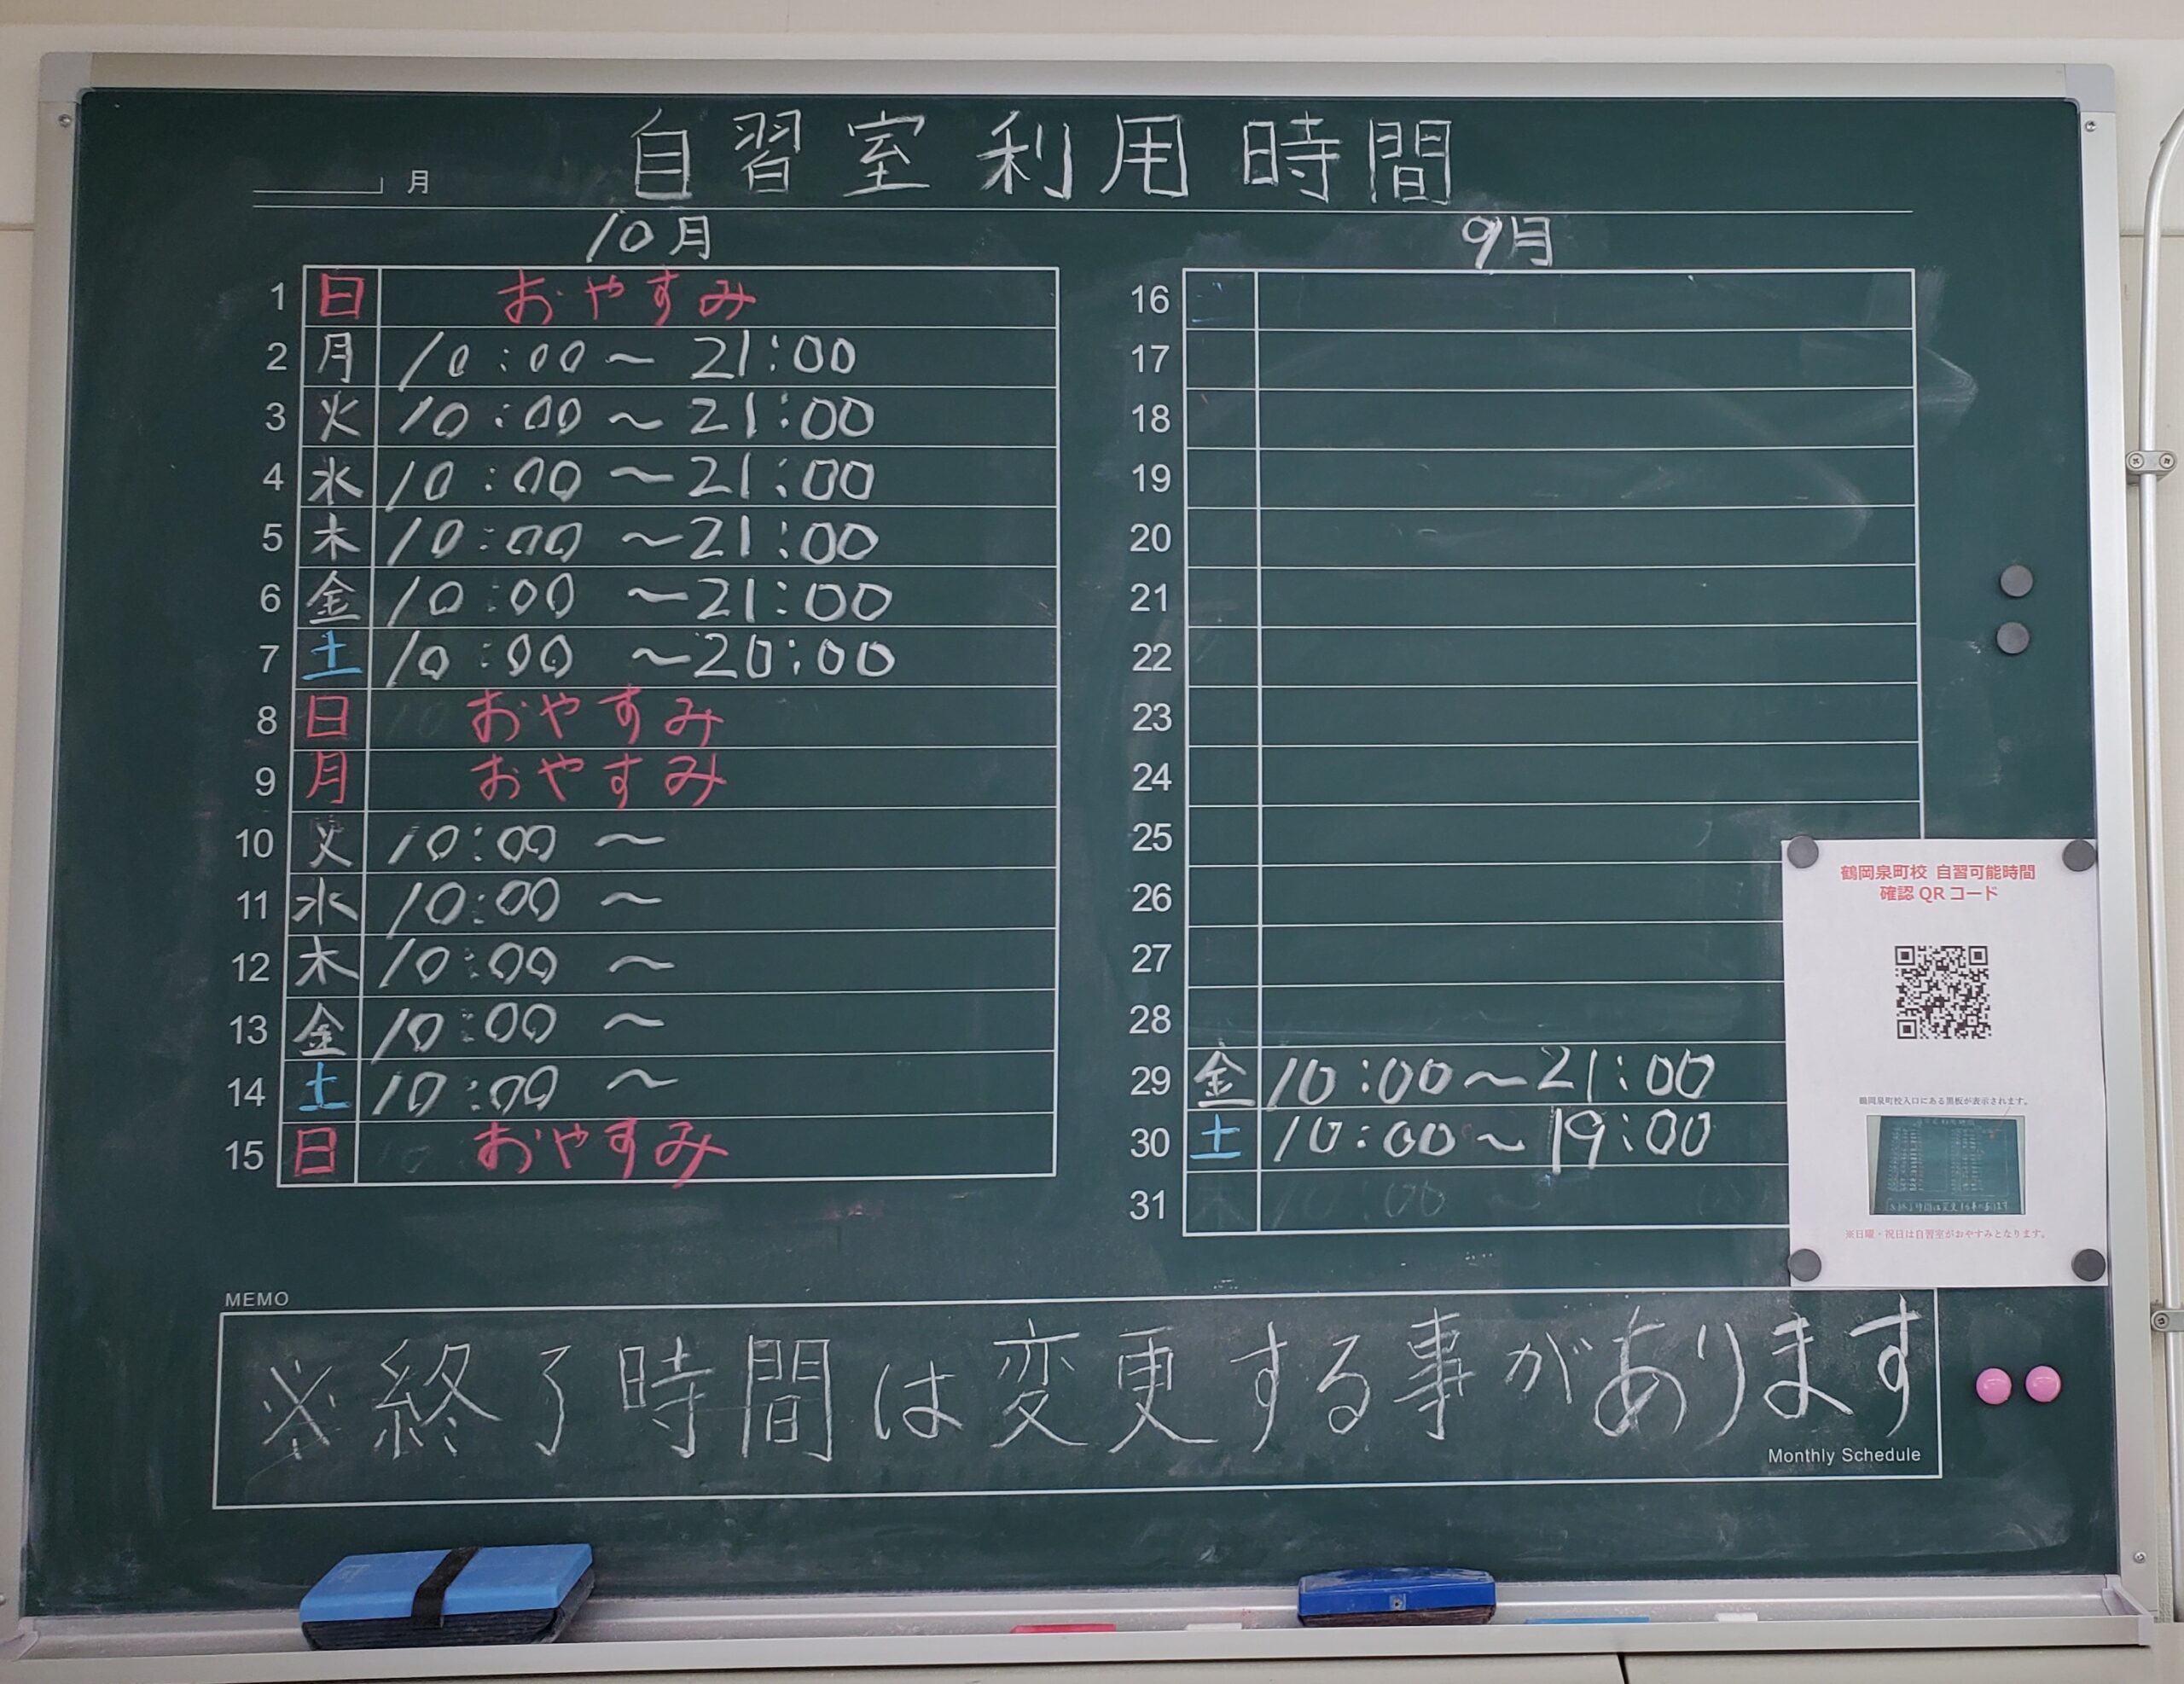 自習室利用時間
月
10月
1 日 おやすみ
2 月 10:00～21:00
3 火 10:00～21:00
4 水 10:00～21:00
5 木 10:00～21:00
6 金 10:00～21:00
7 土 10:00～20:00
8 日 おやすみ
9 月 おやすみ
10 火 10:00～
11 水 10:00～
12 木 10:00～
13 金 10:00～
14 土 10:00～
15 日 おやすみ
9月
16
17
18
19
20
21
22
23
24
25
26
27
28
29 金 10:00～21:00
30 土 10:00～19:00
31
鶴岡泉町校 自習可能時間
確認QRコード
鶴岡泉町校入口にある黒板が表示されます。
※日曜・祝日は自習室がおやすみとなります。
MEMO
※終了時間は変更する事があります
Monthly Schedule